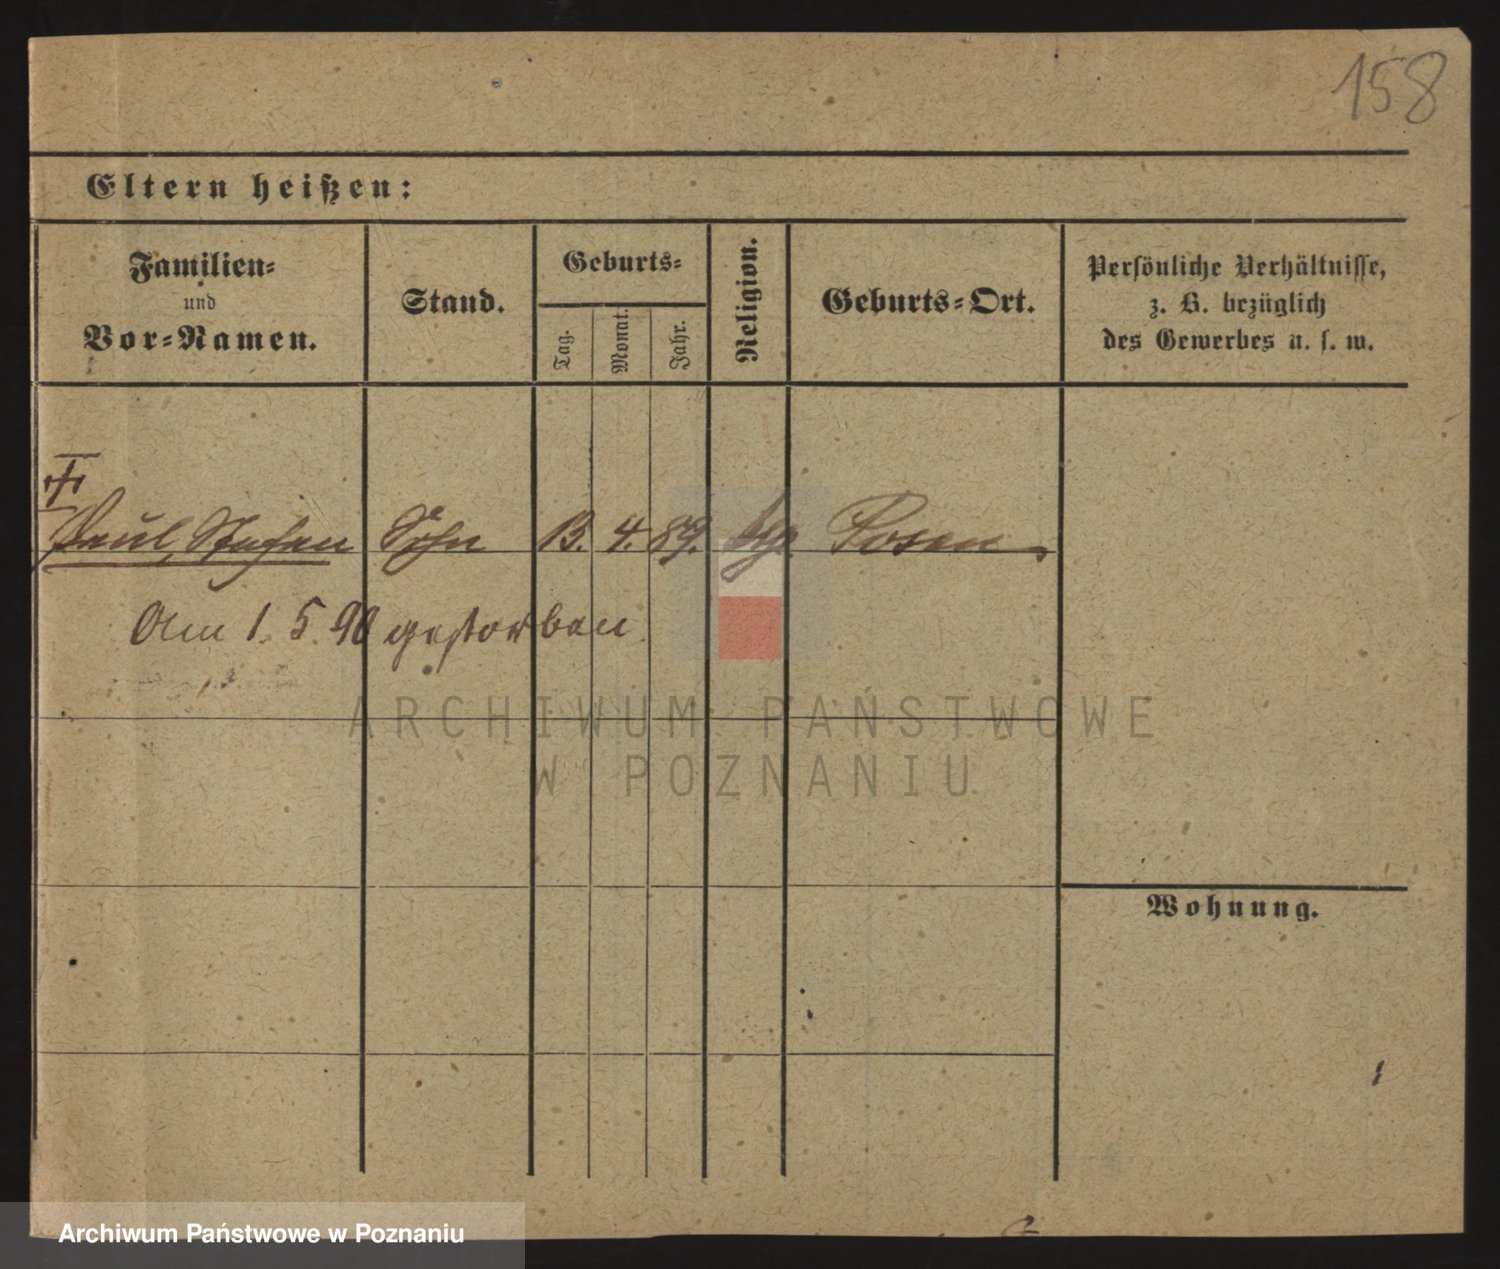 158
Eltern heißen:
Familien-
und
Vor-Namen.
Stand.
Geburts-
Tag.
Monat.
Jahr.
Religion.
Geburts-Ort.
Persönliche Verhältnisse,
z. B. bezüglich
des Gewerbes u. s. w.
Paul, Stefan Sohn 13. 4. 89. Posen
Am 1. 5. 90 gestorben
ARCHIWUM PAŃSTWOWE
W POZNANIU
Wohnung.
Archiwum Państwowe w Poznaniu